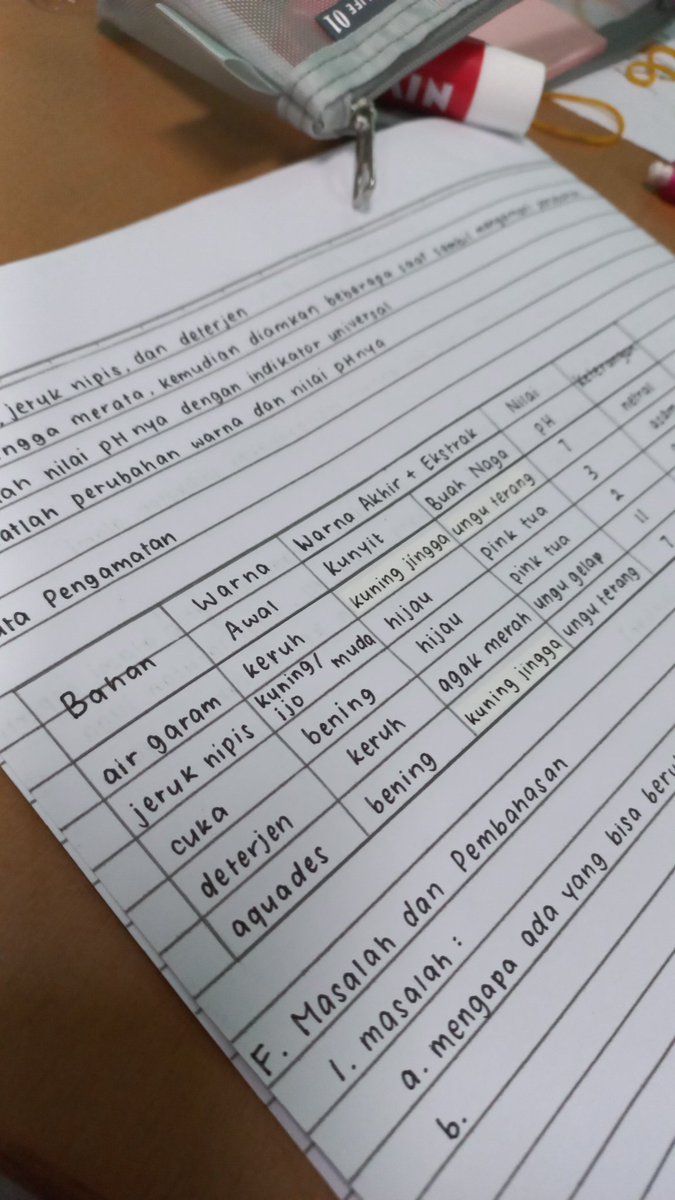 LIFE 01
AIN
jeruk nipis, dan deterjen
ngga merata, kemudian diamkan beberapa saat sambil mengamati
ah nilai pH nya dengan indikator universal
atlah perubahan warna dan nilai pHnya
ta Pengamatan
Bahan Warna Awal Warna Akhir + Ekstrak Nilai pH Keterangan
Kunyit Buah Naga
air garam keruh kuning jingga ungu terang 7 netral
jeruk nipis kuning/ijo muda hijau pink tua 3 asam
cuka bening hijau pink tua 2
deterjen keruh agak merah ungu gelap 11
aquades bening kuning jingga ungu terang 7
F. Masalah dan Pembahasan
1. masalah:
a. mengapa ada yang bisa beru
b.